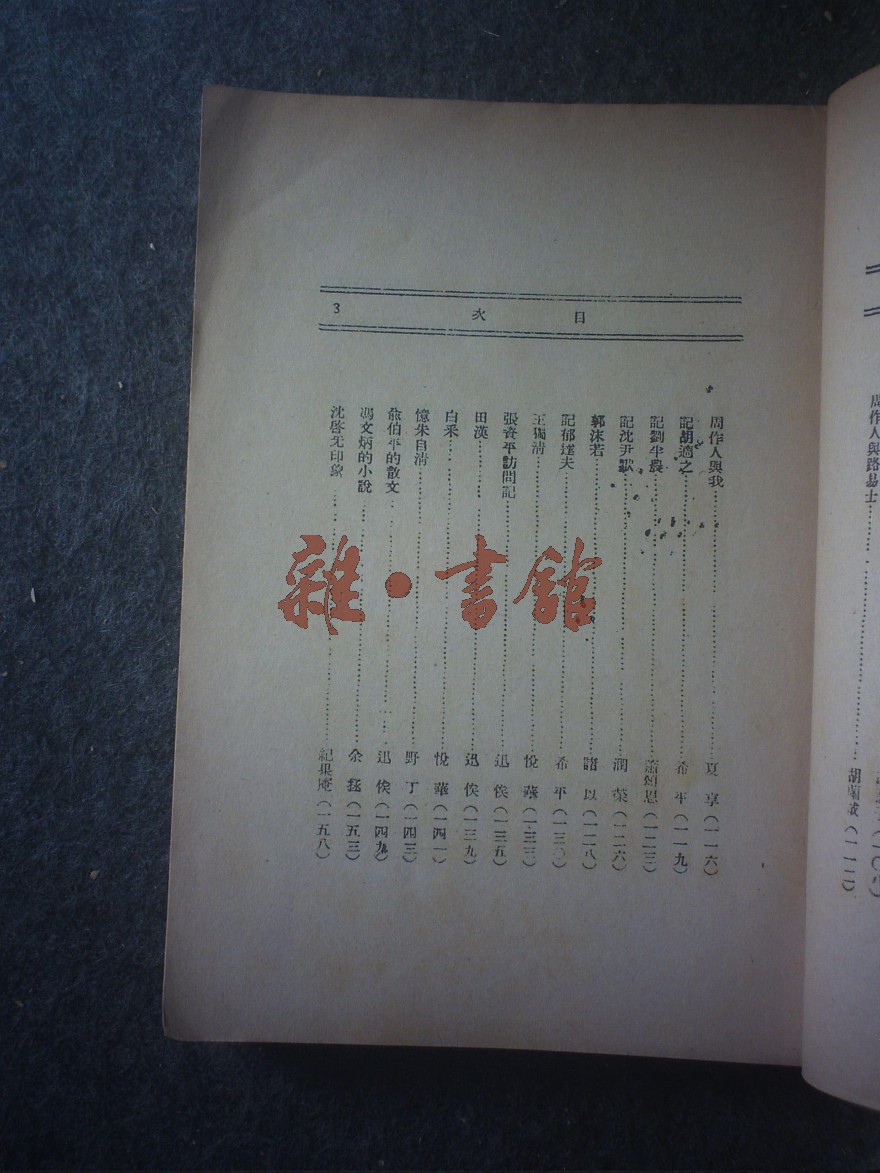 周作人與路易士……胡蘭成（一一二）
目次 3
周作人與我……夏享（一一六）
記胡適之……希平（一一九）
記劉半農……蕭頌恩（一二三）
記沈尹默……潤葇（一二六）
郭沫若……諸以（一二八）
記郁達夫……希平（一三〇）
王獨清……悅華（一三三）
張資平訪問記……迅俟（一三五）
田漢……迅俟（一三九）
白采……悅華（一四一）
憶朱自清……野丁（一四三）
俞伯平的散文……迅俟（一四九）
馮文炳的小說……余拯（一五三）
沈啓无印象……紀果庵（一五八）
雜·書館